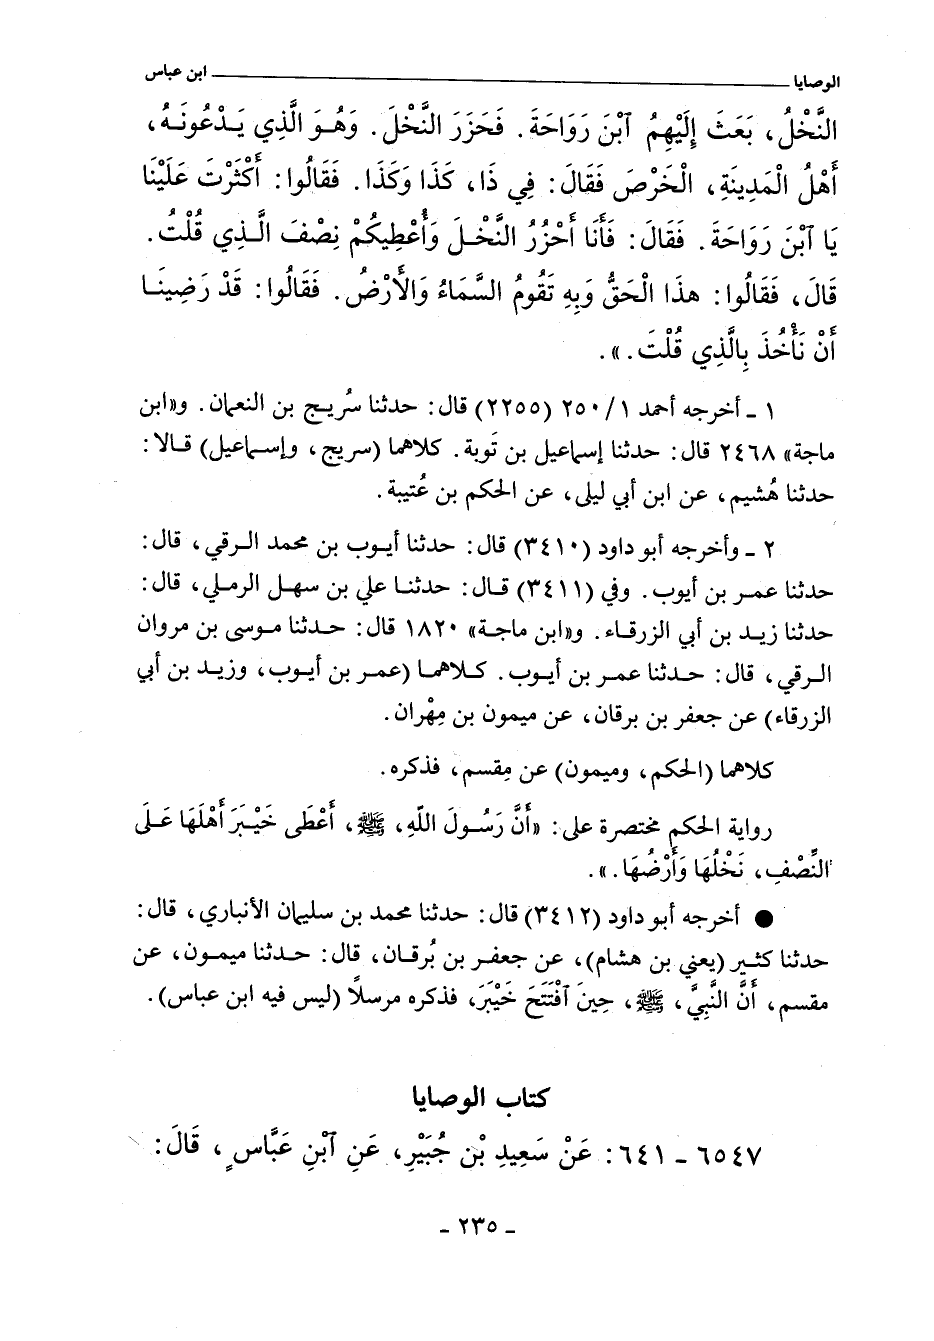 الوصايا ـــــــــ ابن عباس
النَّخْلُ، بَعَثَ إِلَيْهِمُ ٱبْنَ رَوَاحَةَ. فَحَزَرَ النَّخْلَ. وَهُوَ الَّذِي يَدْعُونَهُ،
أَهْلُ الْمَدِينَةِ، الْخَرْصَ فَقَالَ: فِي ذَا، كَذَا وَكَذَا. فَقَالُوا: أَكْثَرْتَ عَلَيْنَا
يَا ٱبْنَ رَوَاحَةَ. فَقَالَ: فَأَنَا أَحْزُرُ النَّخْلَ وَأُعْطِيكُمْ نِصْفَ الَّذِي قُلْتُ.
قَالَ، فَقَالُوا: هذَا الْحَقُّ وَبِهِ تَقُومُ السَّمَاءُ وَالْأَرْضُ. فَقَالُوا: قَدْ رَضِينَا
أَنْ نَأْخُذَ بِالَّذِي قُلْتَ.».
١ ـ أخرجه أحمد ٢٥٠/١ (٢٢٥٥) قال: حدثنا سُريج بن النعمان. و«ابن
ماجة» ٢٤٦٨ قال: حدثنا إسماعيل بن تَوبة. كلاهما (سريج، وإسماعيل) قالا:
حدثنا هُشيم، عن ابن أبي ليلى، عن الحكم بن عُتيبة.
٢ ـ وأخرجه أبو داود (٣٤١٠) قال: حدثنا أيوب بن محمد الرقي، قال:
حدثنا عمر بن أيوب. وفي (٣٤١١) قال: حدثنا علي بن سهل الرملي، قال:
حدثنا زيد بن أبي الزرقاء. و«ابن ماجة» ١٨٢٠ قال: حدثنا موسى بن مروان
الرقي، قال: حدثنا عمر بن أيوب. كلاهما (عمر بن أيوب، وزيد بن أبي
الزرقاء) عن جعفر بن برقان، عن ميمون بن مِهْران.
كلاهما (الحكم، وميمون) عن مِقسم، فذكره.
رواية الحكم مختصرة على: «أَنَّ رَسُولَ اللّهِ، ﷺ، أَعْطَى خَيْبَرَ أَهْلَهَا عَلَى
النِّصْفِ، نَخْلُهَا وَأَرْضُهَا.».
● أخرجه أبو داود (٣٤١٢) قال: حدثنا محمد بن سليمان الأنباري، قال:
حدثنا كثير (يعني بن هشام)، عن جعفر بن بُرقان، قال: حدثنا ميمون، عن
مقسم، أَنَّ النَّبِيَّ، ﷺ، حِينَ ٱفْتَتَحَ خَيْبَرَ، فذكره مرسلًا (ليس فيه ابن عباس).
كتاب الوصايا
٦٥٤٧ ـ ٦٤١: عَنْ سَعِيدِ بْنِ جُبَيْرٍ، عَنِ ٱبْنِ عَبَّاسٍ، قَالَ:
ـ ٢٣٥ ـ